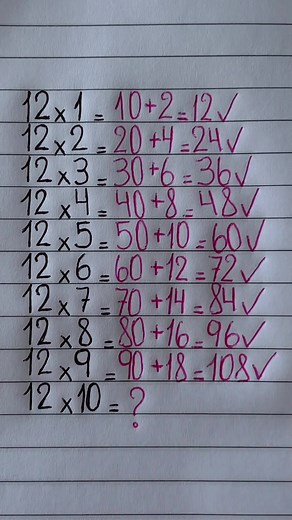 12 x 1 = 10+2 = 12 ✓
12 x 2 = 20+4 = 24 ✓
12 x 3 = 30+6 = 36 ✓
12 x 4 = 40+8 = 48 ✓
12 x 5 = 50+10 = 60 ✓
12 x 6 = 60+12 = 72 ✓
12 x 7 = 70+14 = 84 ✓
12 x 8 = 80+16 = 96 ✓
12 x 9 = 90+18 = 108 ✓
12 x 10 = ?